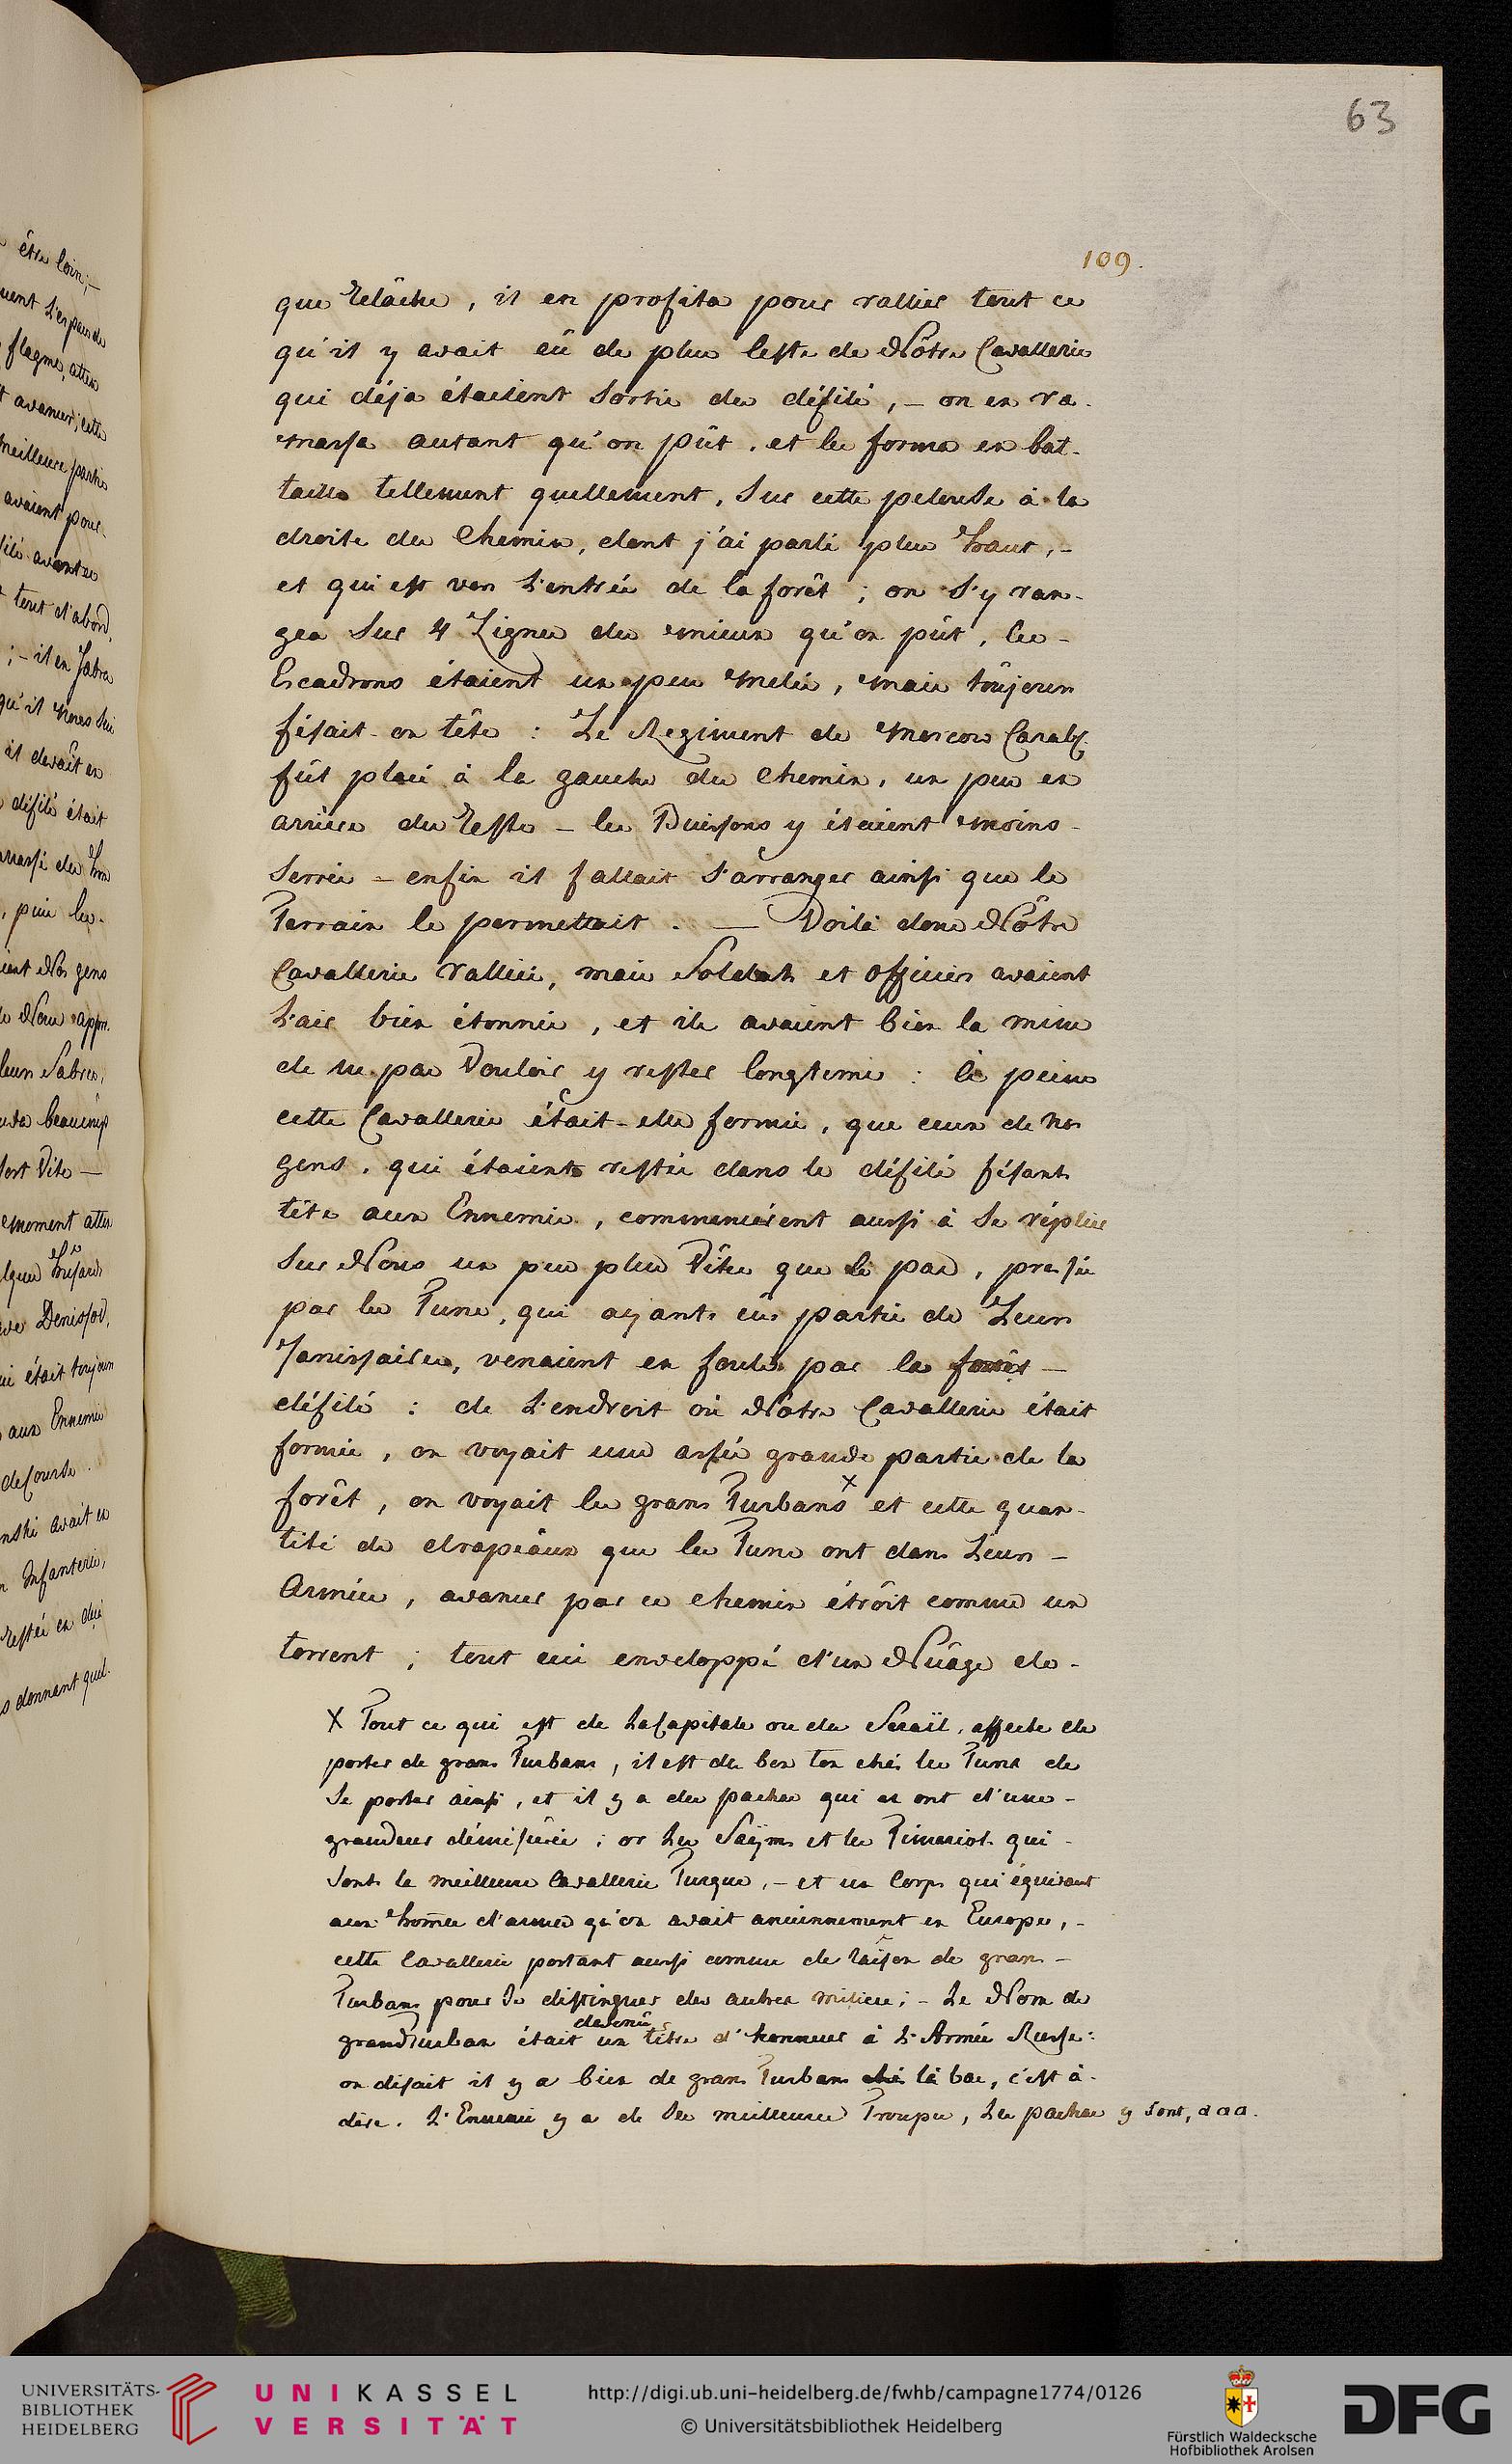 63
109.
que relâche, il en profita pour rallier tout ce
qu'il y avait eû de plus leste de Nôtre Cavallerie
qui déja étaient sortis du défilé, – on en ra-
massa autant qu'on pût, et les forma en bat-
taille tellement quellement, sur cette pelouse à la
droite du Chemin, dont j'ai parlé plus haut, –
et qui est vers l'entrée de la forêt ; on s'y ran-
gea sur 4 Lignes du mieux qu'on pût, les –
Escadrons étaient un peu melés, mais toûjours
fésait-on tête : Le Regiment de Moscou Carab.
fût placé à la gauche du Chemin, un peu en
arriere du reste – les Buissons y étaient moins –
serrés – enfin il fallait s'arranger ainsi que le
Terrain le permettait. — Voilà donc Nôtre
Cavallerie ralliée, mais Soldats et officiers avaient
l'air bien étonnés, et ils avaient bien la mine
de ne pas Vouloir y rester longtems : à peine
cette Cavallerie était-elle formée, que ceux de nos
gens, qui étaients restés dans le défilé fésants
tête aux Ennemis, commencérent aussi à se réplier
sur Nous un peu plus Vîte que le pas, pressés
par les Turcs, qui ayants eûs partie de Leurs
Janissaires, venaient en foule par la forêt –
défilé : de l'endroit où Nôtre Cavallerie était
formée, on voyait une assés grande partie de la
forêt, on voyait les grans Turbans x et cette quan-
tité de drapéaux que les Turcs ont dans Leurs –
Armées, avancer par ce chemin étrôit comme un
torrent ; tout ceci enveloppé d'un Nuâge de –
X Tout ce qui est de La Capitale ou du Serail, affecte de
porter de grans Turbans, il est du bon ton chés les Turcs de
se porter ainsi, et il y a des pachas qui en ont d'une –
grandeur démésurée ; or Les Saÿms et les Timariots qui –
sont la meilleure Cavallerie Turque, – et un Corps qui équivaut
aux hommes d'armes qu'on avait anciennement en Europe, –
cette Cavallerie portant aussi comme de raison de grans –
Turbans pour se distinguer des autres milices ; – Le Nom de
devenû
grandturban était un tître d'honneur à l'Armée Russe :
on disait il y a bien de grans Turbans là bas, c'est à –
dire. L'Ennemi y a de ses meilleures Troupes, Les pachas y sont, a a a.
être loin ; –
flegme, atten
avancer ; cette
meilleure partie
avaient pour-
tout d'abord,
; – il en sabra
qu'il nous sui
il devait en
défilé était
, puis les –
Nos gens
leurs Sabres,
beaucoup
fort Vite —
moment atten
Denissow,
était toujours
aux Ennemis
de Course.
avait eu
Infanterie,
donnant quel-
UNIVERSITÄTS-
BIBLIOTHEK
HEIDELBERG
UNIKASSEL
VERSITÄT
http://digi.ub.uni-heidelberg.de/fwhb/campagne1774/0126
© Universitätsbibliothek Heidelberg
Fürstlich Waldecksche
Hofbibliothek Arolsen
DFG